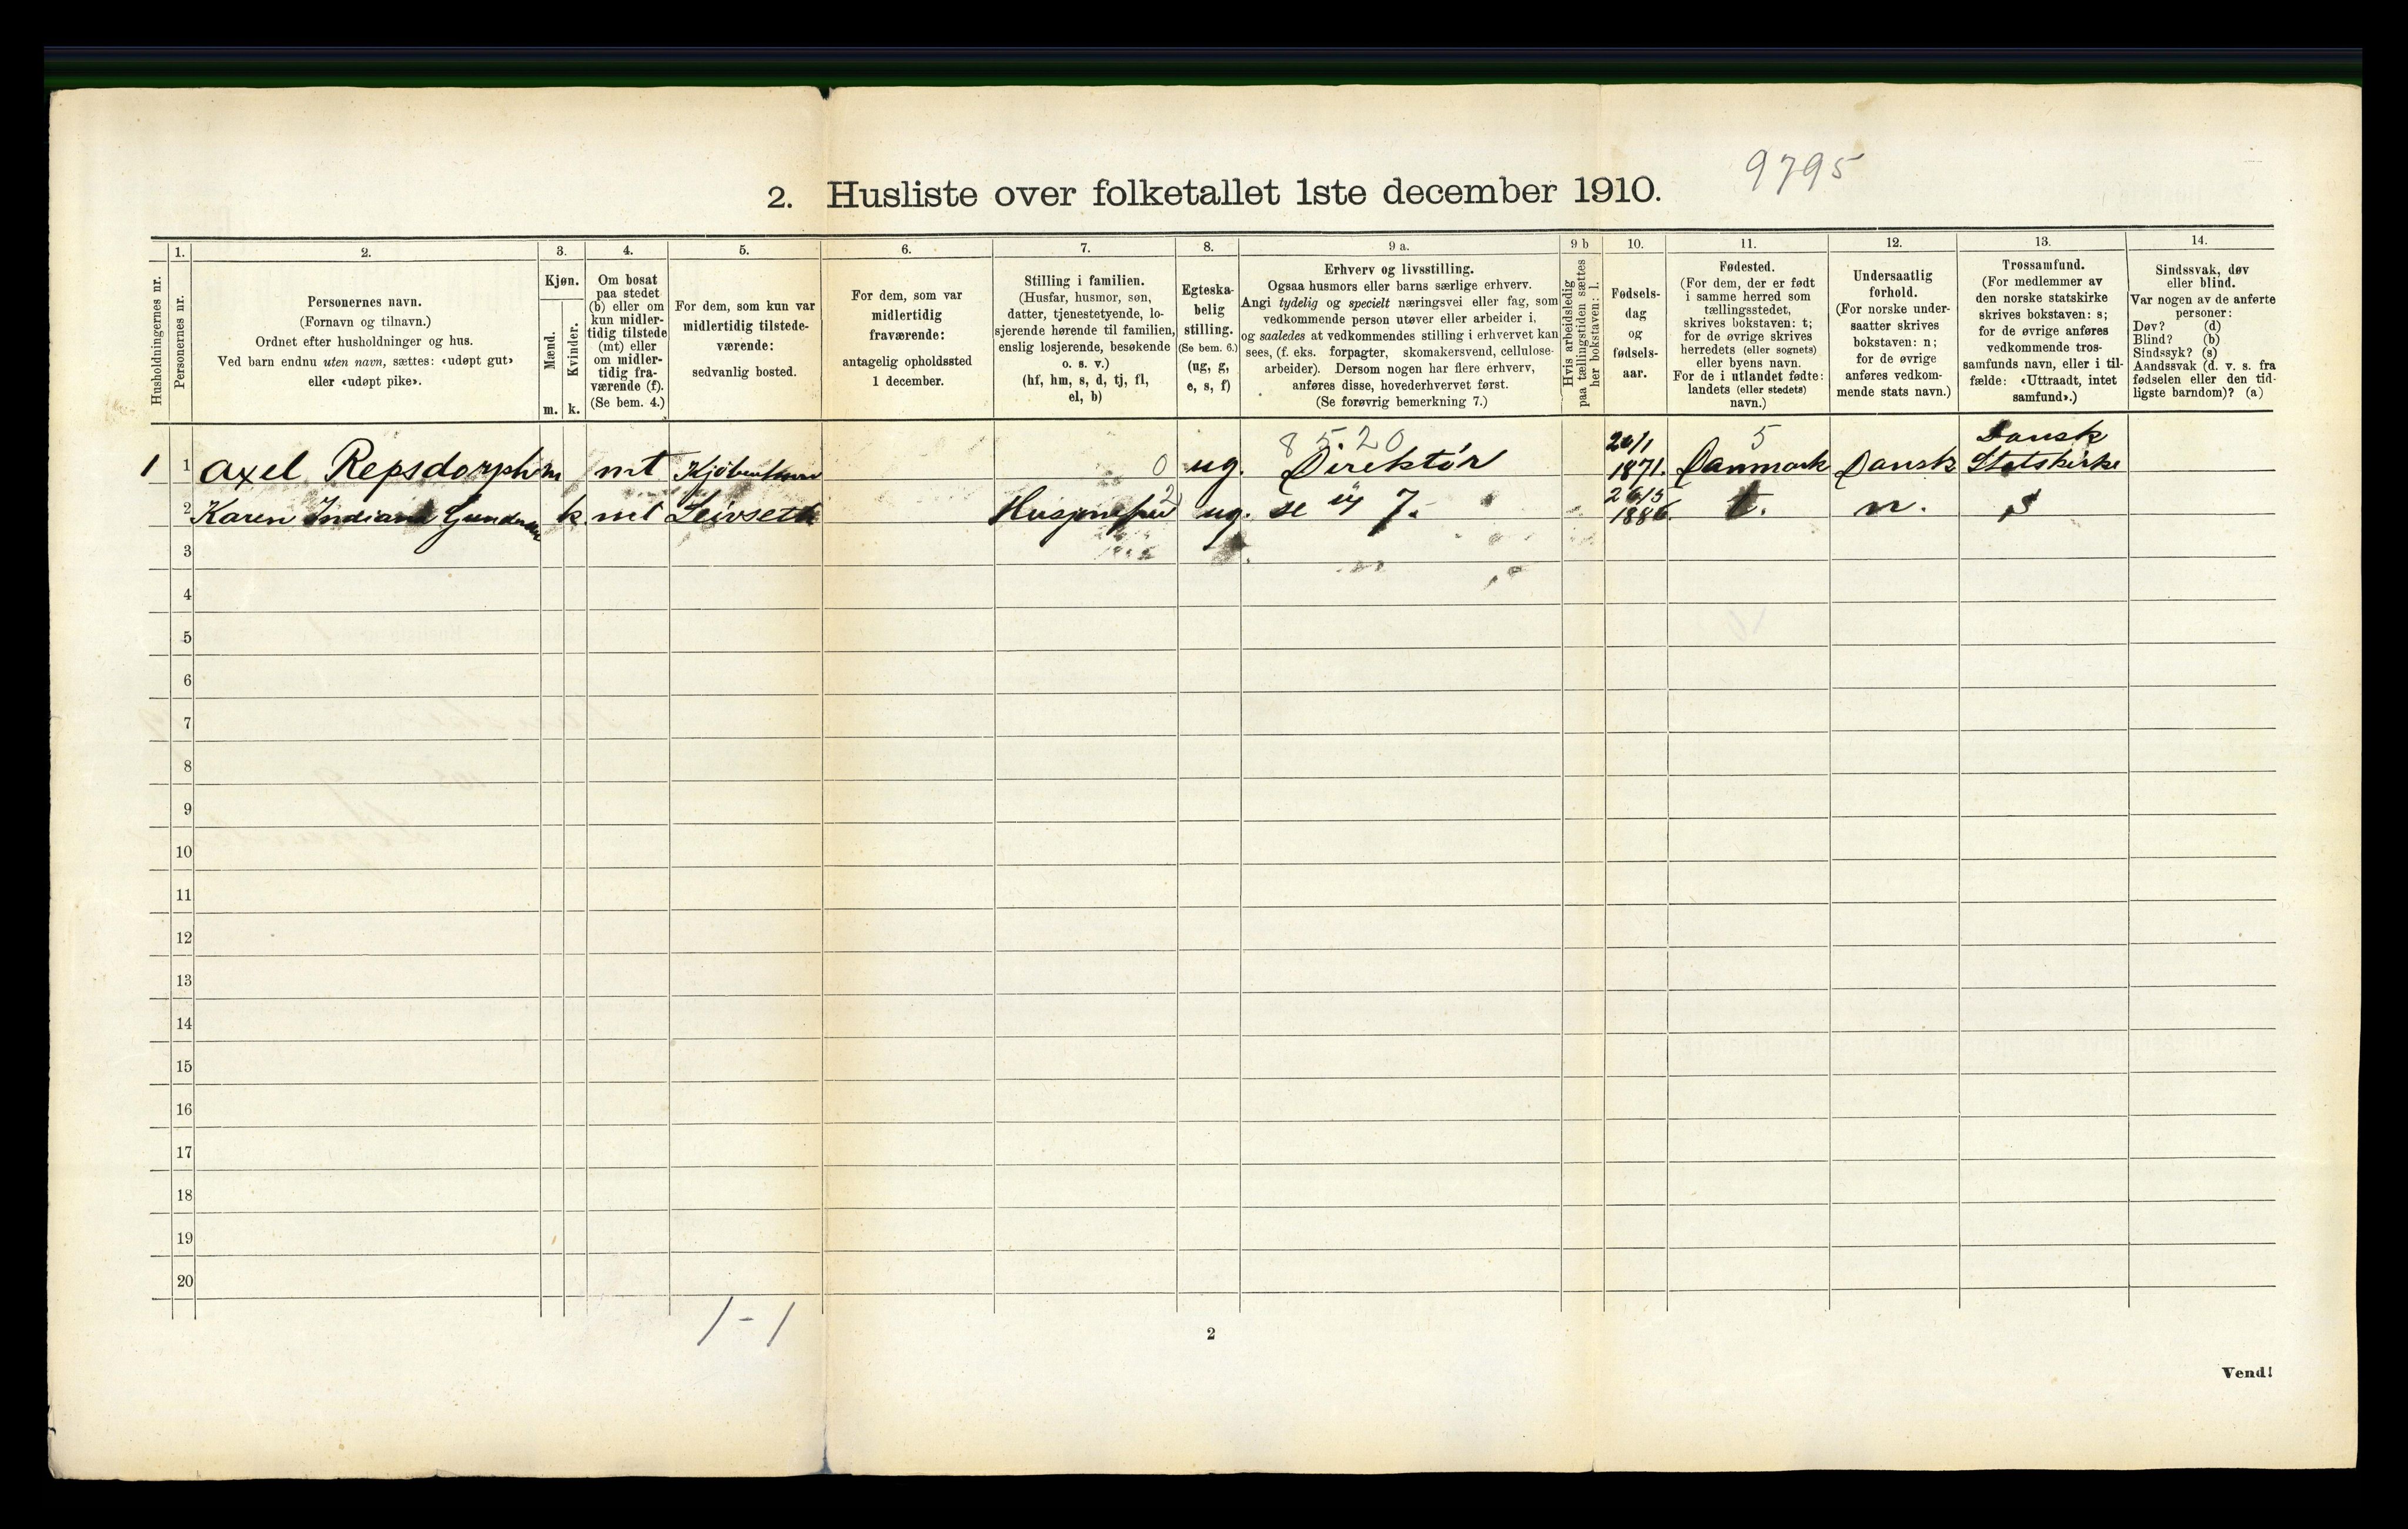 9795
2. Husliste over folketallet 1ste december 1910.
Husholdningernes nr.
1.
Personernes nr.
2.
Personernes navn.
(Fornavn og tilnavn.)
Ordnet efter husholdninger og hus.
Ved barn endnu uten navn, sættes: «udøpt gut»
eller «udøpt pike».
3.
Kjøn.
Mænd.
Kvinder.
m. k.
4.
Om bosat
paa stedet
(b) eller om
kun midler-
tidig tilstede
(mt) eller
om midler-
tidig fra-
værende (f).
(Se bem. 4.)
5.
For dem, som kun var
midlertidig tilstede-
værende:
sedvanlig bosted.
6.
For dem, som var
midlertidig
fraværende:
antagelig opholdssted
1 december.
7.
Stilling i familien.
(Husfar, husmor, søn,
datter, tjenestetyende, lo-
sjerende hørende til familien,
enslig losjerende, besøkende
o. s. v.)
(hf, hm, s, d, tj, fl,
el, b)
8.
Egteska-
belig
stilling.
(Se bem. 6.)
(ug, g,
e, s, f)
9 a.
Erhverv og livsstilling.
Ogsaa husmors eller barns særlige erhverv.
Angi tydelig og specielt næringsvei eller fag, som
vedkommende person utøver eller arbeider i,
og saaledes at vedkommendes stilling i erhvervet kan
sees, (f. eks. forpagter, skomakersvend, cellulose-
arbeider). Dersom nogen har flere erhverv,
anføres disse, hovederhvervet først.
(Se forøvrig bemerkning 7.)
9 b
Hvis arbeidsledig
paa tællingstiden sættes
her bokstaven: l.
10.
Fødsels-
dag
og
fødsels-
aar.
11.
Fødested.
(For dem, der er født
i samme herred som
tællingsstedet,
skrives bokstaven: t;
for de øvrige skrives
herredets (eller sognets)
eller byens navn.
For de i utlandet fødte:
landets (eller stedets)
navn.)
12.
Undersaatlig
forhold.
(For norske under-
saatter skrives
bokstaven: n;
for de øvrige
anføres vedkom-
mende stats navn.)
13.
Trossamfund.
(For medlemmer av
den norske statskirke
skrives bokstaven: s;
for de øvrige anføres
vedkommende tros-
samfunds navn, eller i til-
fælde: «Uttraadt, intet
samfund».)
14.
Sindssvak, døv
eller blind.
Var nogen av de anførte
personer:
Døv? (d)
Blind? (b)
Sindssyk? (s)
Aandssvak (d. v. s. fra
fødselen eller den tid-
ligste barndom)? (a)
8 5.20 20/1 5 Dansk
1 1 Axel Repsdorph m mt 0 ug. Direktör 1871. Danmark Dansk Statskirke
2 Karen k. mt Leivseth 2 ug. se 7. 1886. t. n. s
3
4
5
6
7
8
9
10
11
12
13
14
15
16
17
18
19
20
1-1
2
Vend!